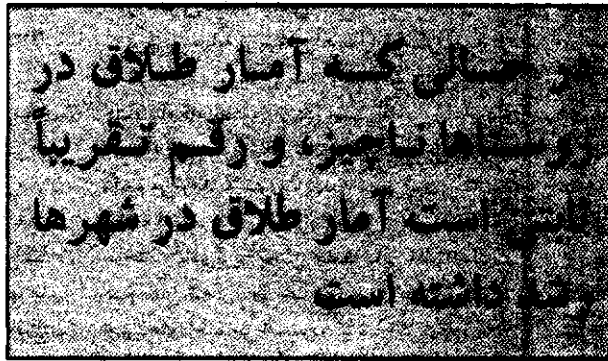 در حالی که آمار طلاق در
روستاها ناچیز، و رقم تقریباً
ثابتی است، آمار طلاق در شهرها
رشد داشته است